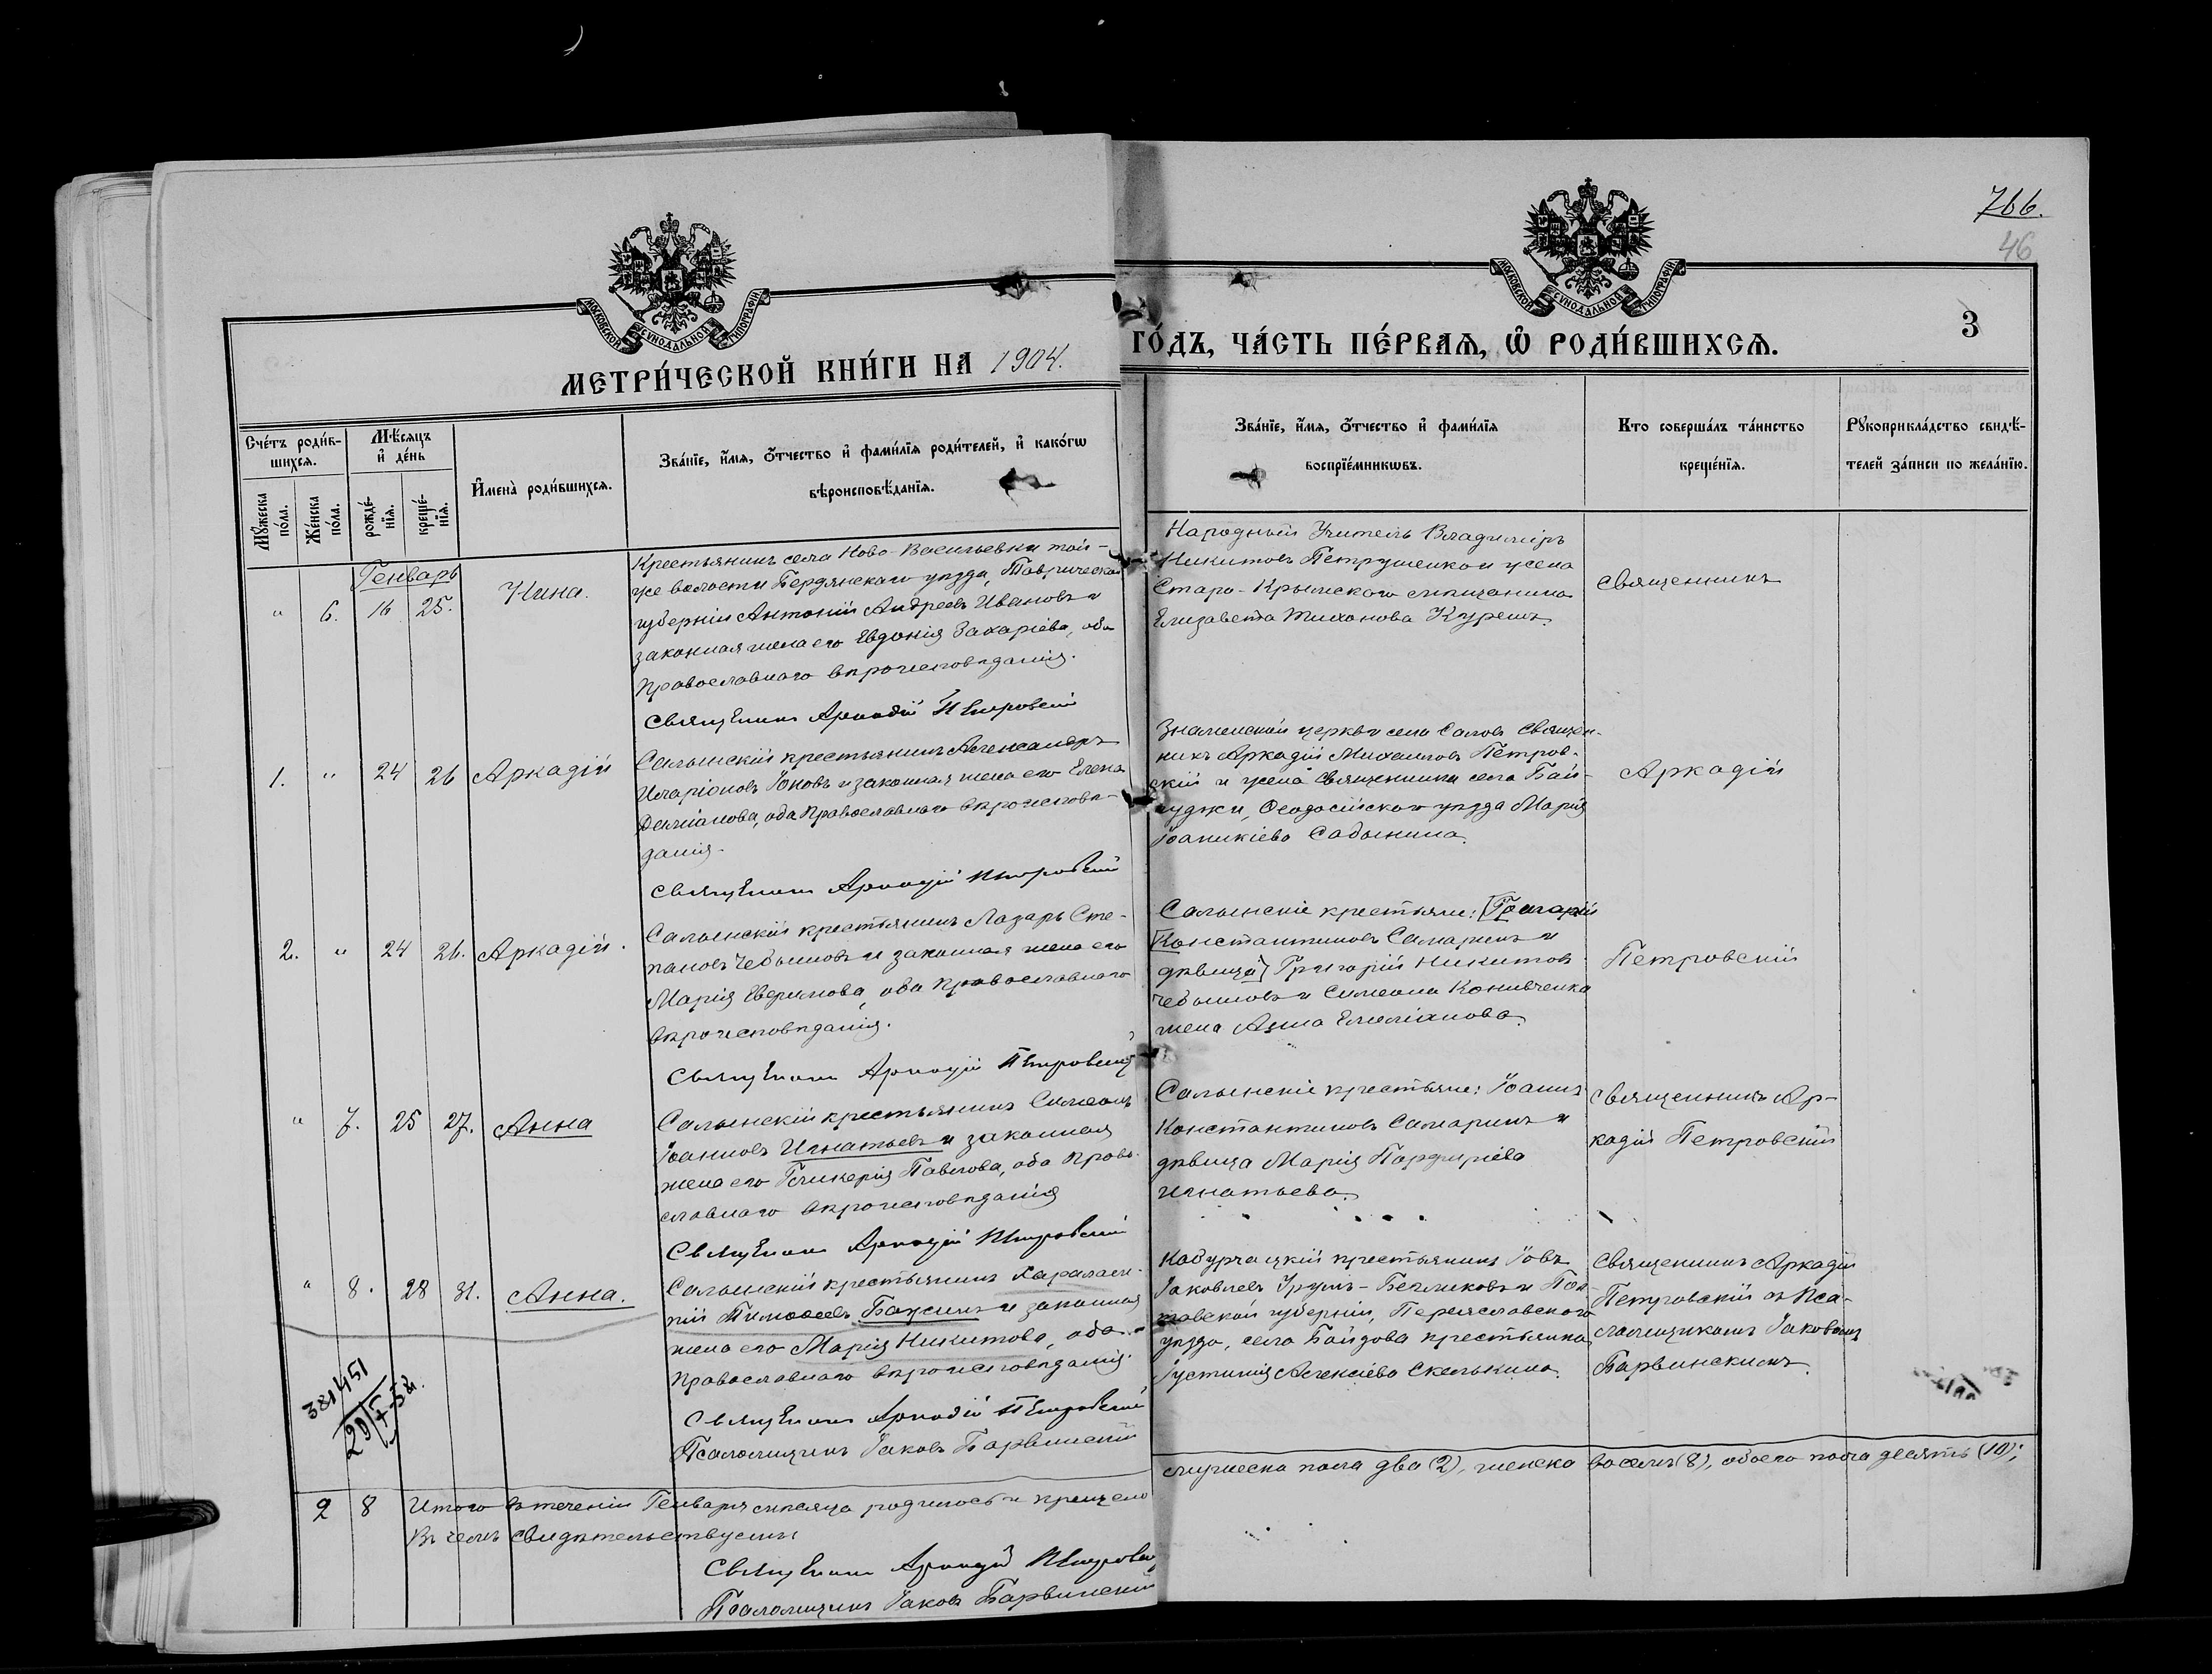 766.
46
3
МОСКОВСКОЙ СѴНОДАЛЬНОЙ ТИПОГРАФІИ
МОСКОВСКОЙ СѴНОДАЛЬНОЙ ТИПОГРАФІИ
МЕТРИ́ЧЕСКОЙ КНИ́ГИ НА 1904.
ГО́ДЪ, ЧА́СТЬ ПЕ́РВАЯ, Ѽ РОДИ́ВШИХСЯ.
Сче́тъ роди́в-
шихся.
Мѣ́сяцъ
и҆ де́нь
Мꙋ́жеска
по́ла.
Же́нска
по́ла.
рожде́-
нїя.
креще́-
нїя.
И҆мена̀ роди́вшихся.
Зва́нїе, и҆́мя, ѻ҆́тчество и҆ фами́лїя роди́телей, и҆ како́гѡ
вѣроисповѣ́данїя.
Зва́нїе, и҆́мя, ѻ҆́тчество и҆ фами́лїя
воспрїе́мникѡвъ.
Кто соверша́лъ та́инство
креще́нїя.
Рꙋкоприкла́дство свидѣ́-
телей за́писи по жела́нїю.
Генварь
" 6. 16 25. Нина.
Крестьянинъ села Ново-Васильевки той-
же волости Бердянскаго уѣзда, Таврической
губерніи Антоній Андреевъ Ивановъ и
законная жена его Евдокія Захаріева, оба
Православнаго вѣроисповѣданія.
Священникъ Аркадій Петровскій
Народный Учитель Владиміръ
Никитовъ Петрушенко и жена
Старо-Крымскаго мѣщанина
Елизавета Тихонова Курешъ.
священникъ
1. " 24 26 Аркадій
Салынскій крестьянинъ Александръ
Иларіоновъ Іоновъ и законная жена его Елена
Даміанова, оба Православнаго вѣроисповѣ-
данія.
Священникъ Аркадій Петровскій
Знаменской церкви села Салов Священ-
никъ Аркадій Михаиловъ Петров-
скій и жена Священника села Бай-
буджи, Ѳеодосійскаго уѣзда Марія
Іоаникіева Садынина.
Аркадій
2. " 24 26. Аркадій.
Салынскій крестьянинъ Лазарь Сте-
пановъ Чебышовъ и законная жена его
Марія Евфимова, оба Православнаго
вѣроисповѣданія.
Священникъ Аркадій Петровскій
Салынскіе крестьяне:
Константиновъ Самаринъ и
дѣвица] Григорій Никитовъ
Чебышовъ и Симеона Конивченка
жена Анна Емеліанова.
Петровскій
" 7. 25 27. Анна
Салынскій крестьянинъ Симеонъ
Іоанновъ Игнатьевъ и законная
жена его Гликерія Павлова, оба Право-
славнаго вѣроисповѣданія
Священникъ Аркадій Петровскій
Салынскіе крестьяне: Іоаннъ
Константиновъ Самаринъ и
дѣвица Марія Порфиріева
Игнатьева.
Священникъ Ар-
кадій Петровскій
" 8. 28 31. Анна.
Салынскій крестьянинъ Харалам-
пій Тимоѳеевъ Бажинъ и законная
жена его Марія Никитова, оба
Православнаго вѣроисповѣданія.
Священникъ Аркадій Петровскій
Псаломщикъ Іаковъ Барвинскій
Кабурчацкій крестьянинъ Іовъ
Іаковлевъ и Пол-
тавской губерніи, Переяславскаго
уѣзда, села Байдова крестьянка
Іустинія Алексіева Скелькина.
Священникъ Аркадій
Петровскій съ Пса-
ломщикомъ Іаковомъ
Барвинскимъ
381451
29/V-58.
2 8 Итого въ теченіи Генваря мѣсяца родилось и крещено
мужеска пола два (2), женска восемь (8), обоего пола десять (10);
Въ чемъ свидѣтельствуемъ:
Священникъ Аркадій Петровскій
Псаломщикъ Іаковъ Барвинскій